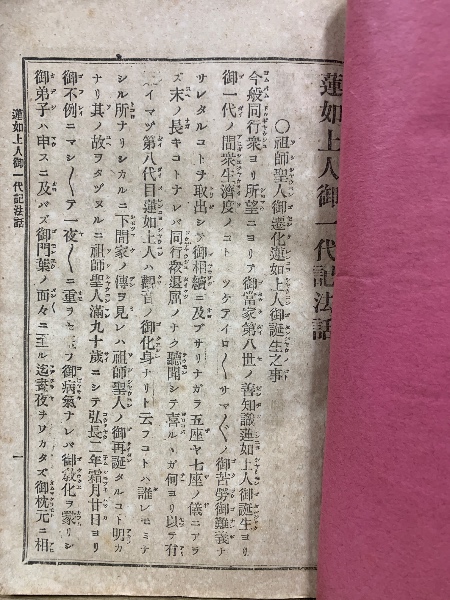 蓮如上人御一代記法話
〇祖師聖人御遷化蓮如上人御誕生之事
今般同行衆ヨリ所望ニヨリテ御當家第八世ノ善知識蓮如上人御誕生ヨリ
御一代ノ間衆生濟度ノコト ツケテイロ〱サマ〲ノ御苦勞御難義ナ
サレタルコトヲ取出シテ御相續ニ及ブサリナガラ五座ヤ七座ノ儀ニアラ
ズ末ノ長キコトナレバ同行衆退屈ノナク聽聞シテ喜ルヽガ何ヨリ以テ有
イマヅ第八代目蓮如上人ハ觀音ノ御化身ナリト云フコトハ誰レモミナ
シル所ナリシカルニ下間家ノ傳ヲ見レハ祖師聖人ノ御再誕タルコト明カ
ナリ其ノ故ヲタヅヌルニ祖師聖人滿九十歲ニシテ弘長二年霜月廿日ヨリ
御不例ニマシ〱テ一夜〱ニ重ラセ玉フ御病氣ナレバ御敎化ヲ蒙リシ
御弟子ハ申スニ及バズ御門葉ノ面々ニ至ル迄晝夜ヲワカタズ御枕元ニ相
蓮如上人御一代記法話
一